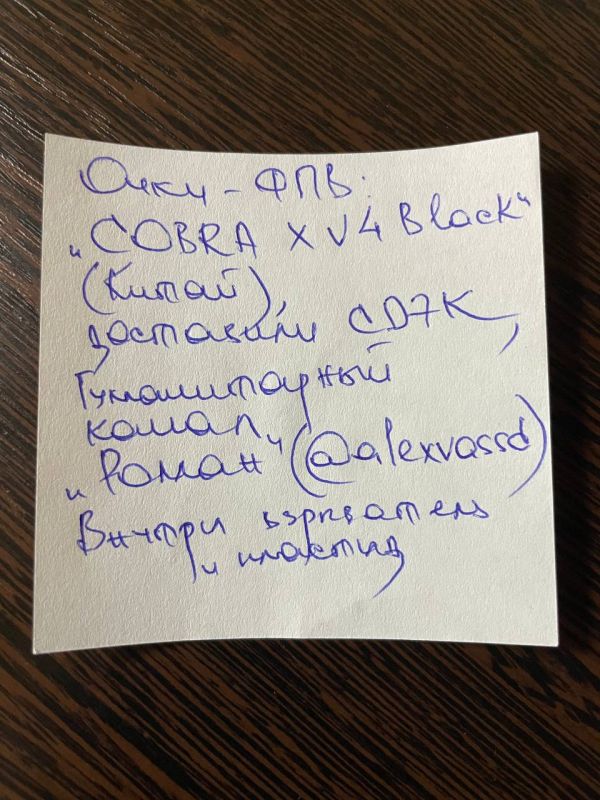 Очки - ФПВ:
"COBRA X V4 Black"
(Китай),
доставили CD7K,
Гуманитарный
канал,
"Роман" (@alexvassd)
Внутри взрыватель
и пластид